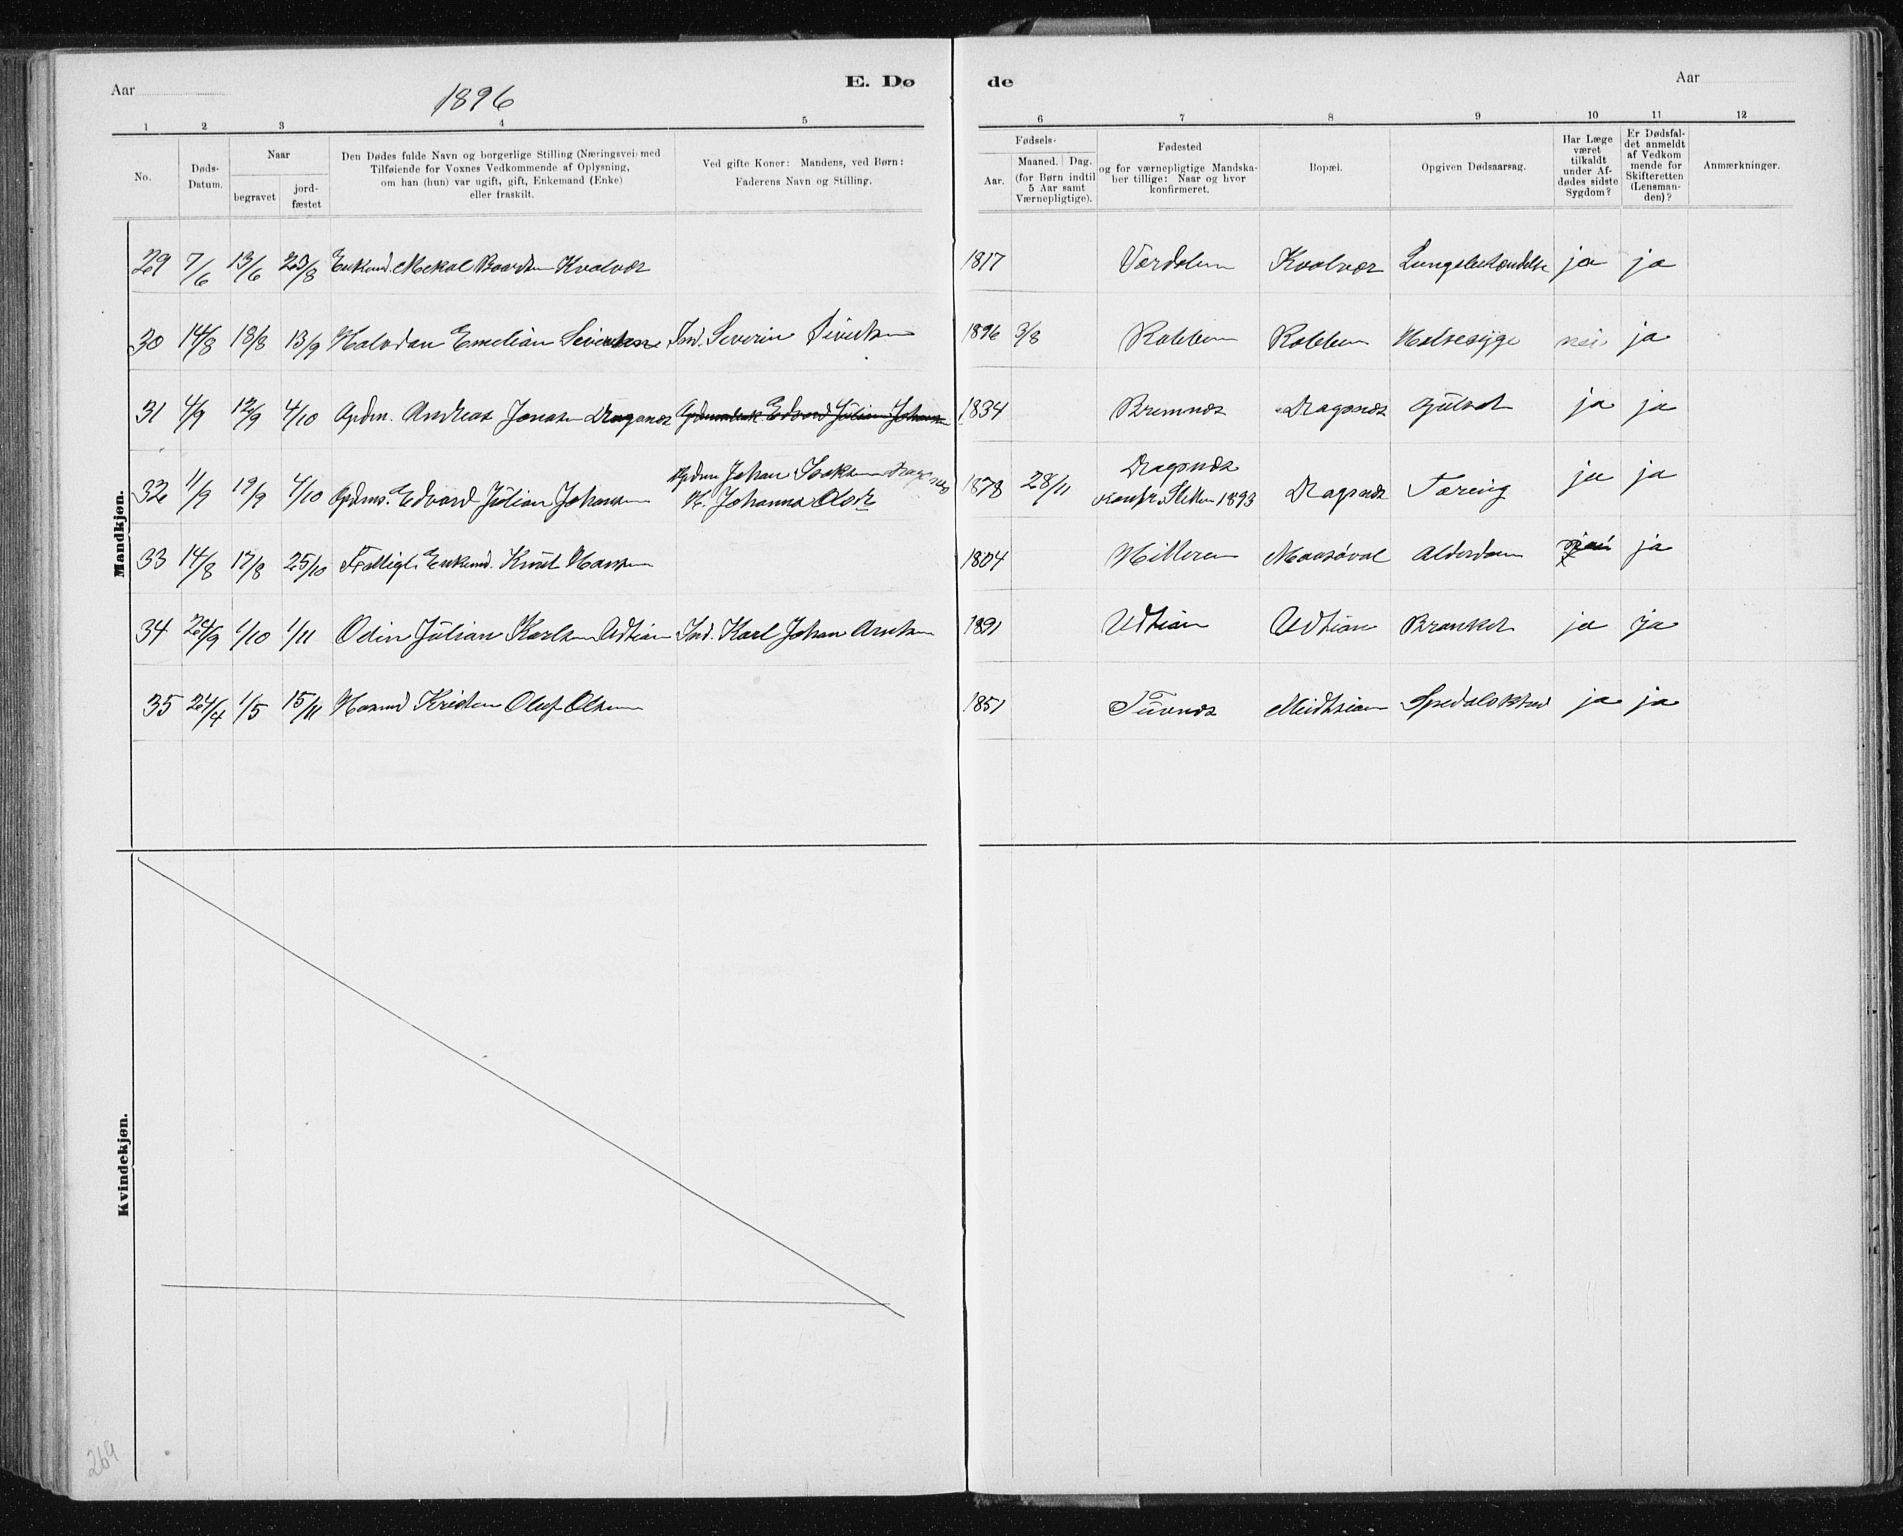 Aar
1896
E. Dø
de
Aar
1 2 3 4 5 6 7 8 9 10 11 12
No.
Døds-
Datum.
Naar
begravet
jord-
fæstet
Den Dødes fulde Navn og borgerlige Stilling (Næringsvei) med
Tilføiende for Voxnes Vedkommende af Oplysning,
om han (hun) var ugift, gift, Enkemand (Enke)
eller fraskilt.
Ved gifte Koner: Mandens, ved Børn:
Faderens Navn og Stilling.
Fødsels-
Aar.
Maaned. Dag.
(for Børn indtil
5 Aar samt
Værnepligtige).
Fødested
og for værnepligtige Mandska-
ber tillige: Naar og hvor
konfirmeret.
Bopæl.
Opgiven Dødsaarsag.
Har Læge
været
tilkaldt
under Af-
dødes sidste
Sygdom?
Er Dødsfal-
det anmeldt
af Vedkom
mende for
Skifteretten
(Lensman-
den)?
Anmærkninger.
Mandkjøn.
29 7/6 13/6 23/8 Enkemd. Mekal Baardsen Kvalvær 1817 Værdalen Kvalvær Lungebetændelse ja ja
30 14/8 18/8 13/9 Halvdan Emelian Sivertsen Ind. Severin Sivertsen 1896 3/8 Kobben Kobben Halsesyge nei ja
31 4/9 12/9 4/10 Gpdm. Andreas Jonasen Dragsnæs Edvard Julian Johansen 1834 Bremnes Dragsnæs Gulsot ja ja
32 11/9 19/9 4/10 Gpdms. Edvard Julian Johansen Gpdm Johan Isaksen Dragsnæs
K. Johanna Olsdr 1878 28/11 Dragsnæs
konfr. Sletten 1893 Dragsnæs Tæring ja ja
33 14/8 17/8 25/10 Fattigl. Enkemd. Knut Hansen 1804 Hitteren Maasøval Alderdom ja
34 26/9 1/10 1/11 Odin Julian Karlsen Udtian Ind. Karl Johan Arntsen 1891 Udtian Udtian Branket ja ja
35 24/4 1/5 15/11 Husmd Kristen Oluf Olsen 1851 Tuvnæs Midtsian Spedalskhed ja ja
Kvindekjøn.
269